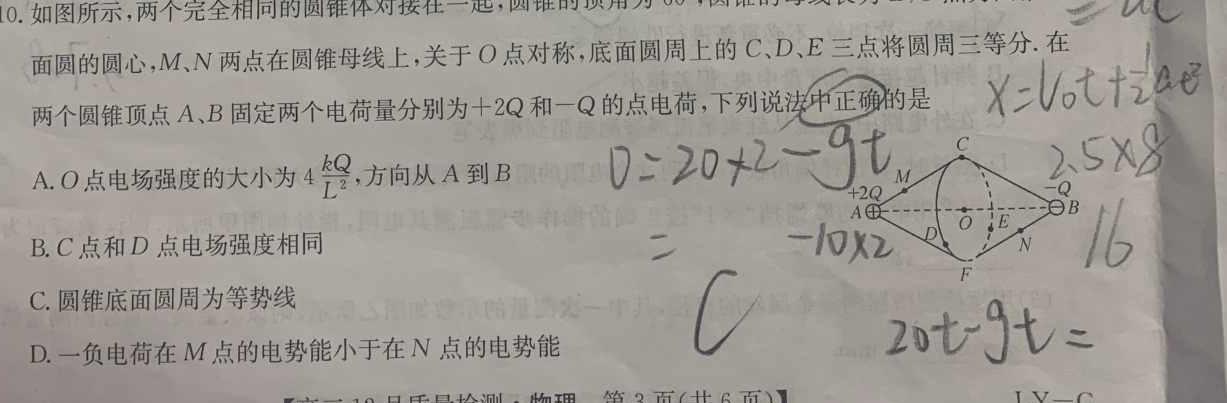 10. 如图所示,两个完全相同的圆锥体对接在一起,圆锥的顶角为60
面圆的圆心,M、N 两点在圆锥母线上,关于 O 点对称,底面圆周上的 C、D、E 三点将圆周三等分. 在
两个圆锥顶点 A、B 固定两个电荷量分别为+2Q 和-Q 的点电荷,下列说法中正确的是
x=V₀t+½at²
A. O 点电场强度的大小为 4 kQ/L²,方向从 A 到 B
0=20×2-gt
2.5×8
C
M
+2Q
-Q
A
B
O
E
D
N
F
B. C 点和 D 点电场强度相同
=
-10×2
16
C. 圆锥底面圆周为等势线
C
20t-gt=
D. 一负电荷在 M 点的电势能小于在 N 点的电势能
物理 第 3 页(共 6 页)】
LY—C